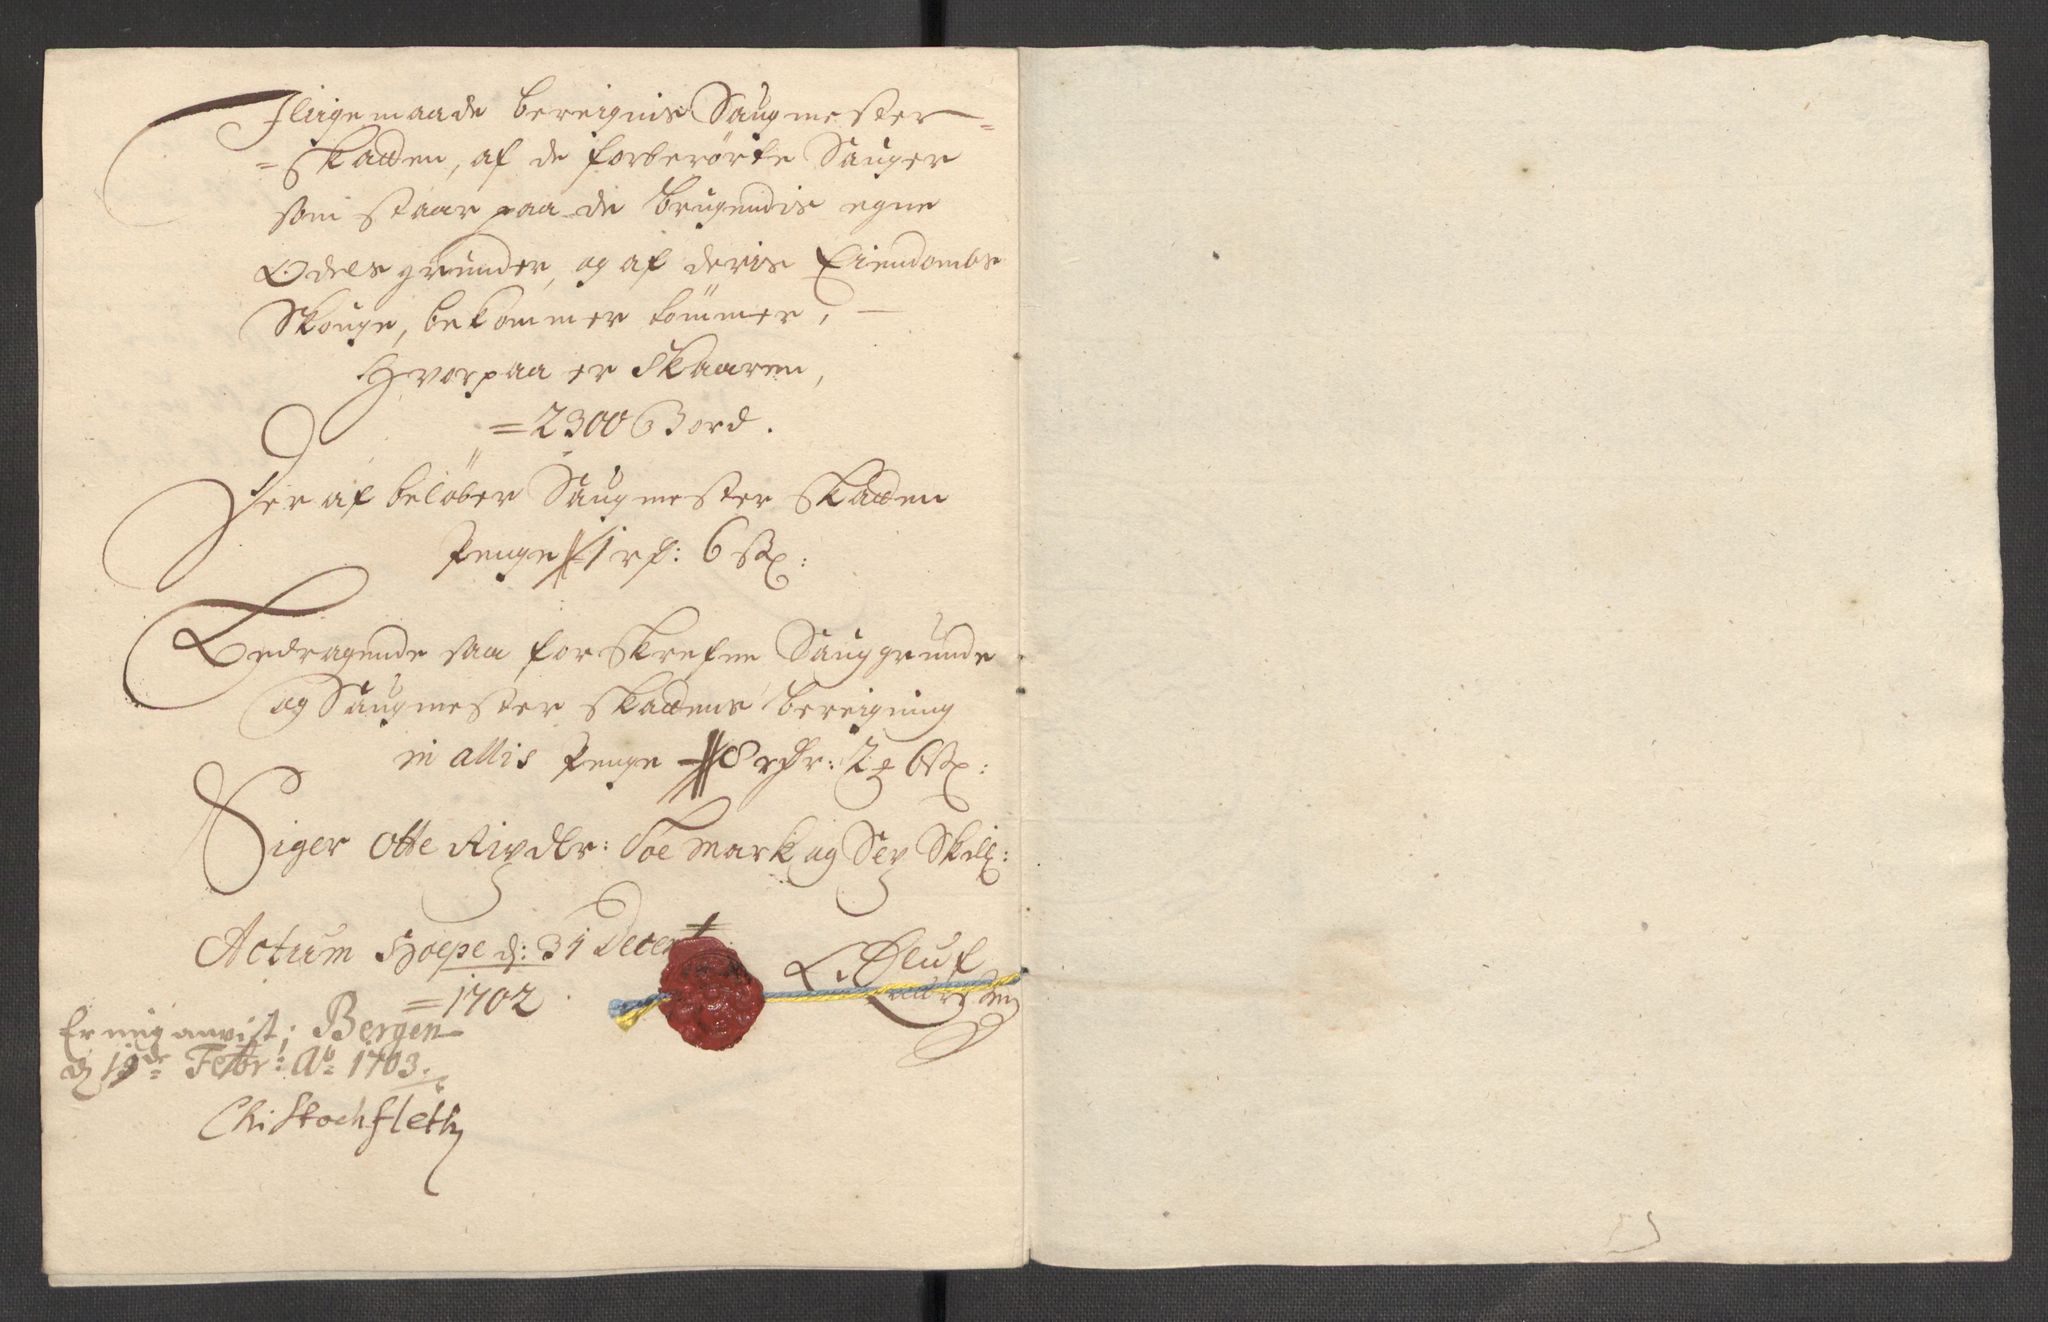 Iliigemaade bereignis Saugmester-
=Skatten, af de forberørte Sauger
som staar paa de brugendis egne
Odels grunder, og af deris Eiendombs
Skouge, bekommer tømmer, —
Hvorpaa er Skaaren,
=2300 Bord.
Her af beløber Saugmester Skatten
Penge 1 rd: 6 sk:
Bedragende saa forskrefne Sauggrunde
og Saugmester Skattens bereigning
in allis Penge 8 rdr: 2 6 sk:
Siger Otte Rixdlr: Toe Mark og Sex Skill:
Actum Hoepe d: 31 Decem
=1702.
Er mig anvist; Bergen
d 19de Febr: Ao 1703.
Oluf
Laarsen
Chr Stockfleth